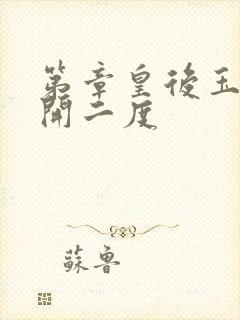 第章皇後玉
開二度
蘇魯